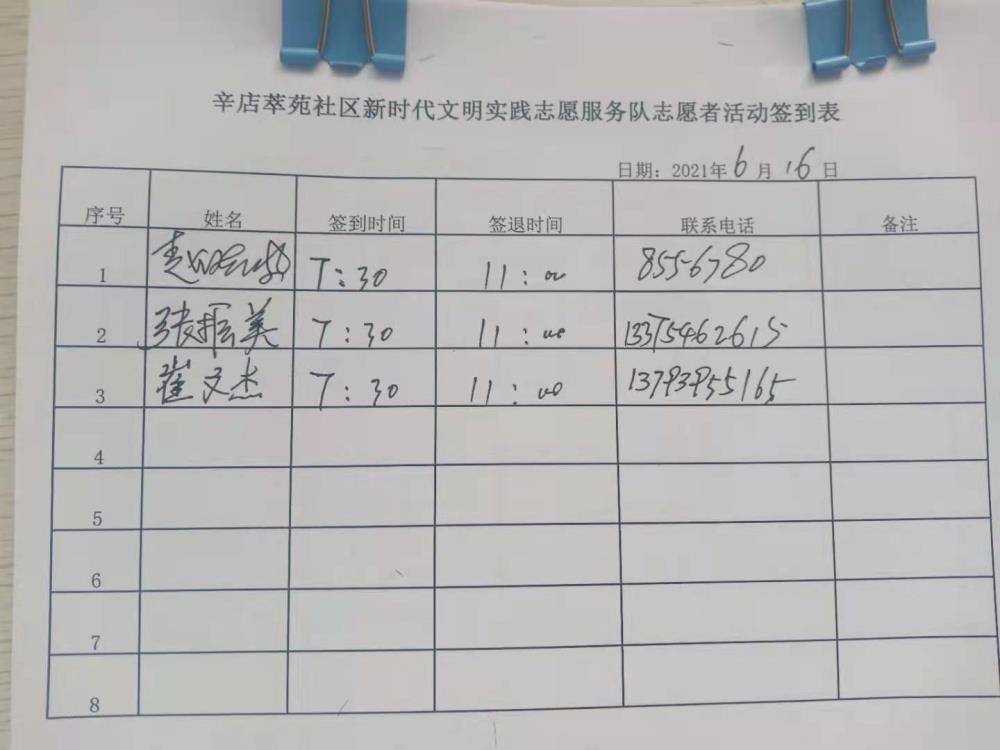 辛店萃苑社区新时代文明实践志愿服务队志愿者活动签到表
日期：2021年6月16日
序号 姓名 签到时间 签退时间 联系电话 备注
1 7:30 11:00 8556780
2 张振美 7:30 11:00 13375462615
3 崔文杰 7:30 11:00 13793955165
4
5
6
7
8